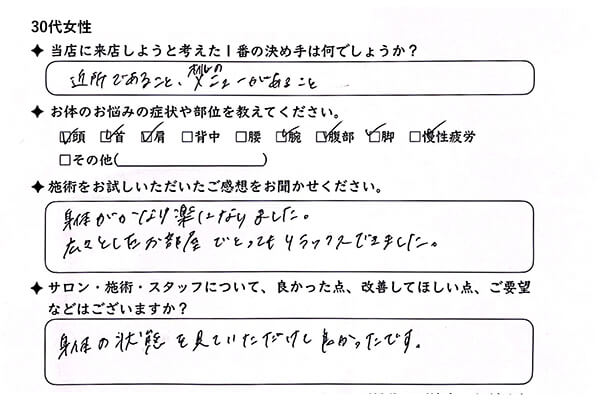 30代女性
✦ 当店に来店しようと考えた1番の決め手は何でしょうか？
近所であること、メニューがあること
✦ お体のお悩みの症状や部位を教えてください。
☑頭 ☑首 ☑肩 □背中 □腰 ☑腕 ☑腹部 ☑脚 ☑慢性疲労
□その他( )
✦ 施術をお試しいただいたご感想をお聞かせください。
身体がかなり楽になりました。
広々としたお部屋でとってもリラックスできました。
✦ サロン・施術・スタッフについて、良かった点、改善してほしい点、ご要望
などはございますか？
身体の状態を見ていただけて良かったです。